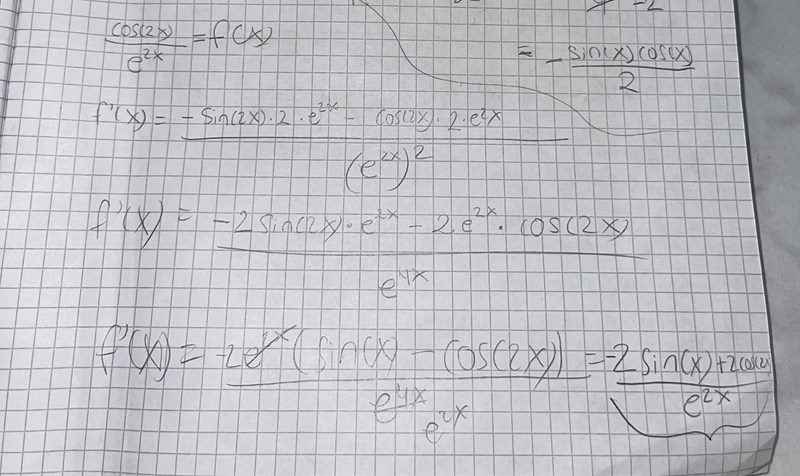 cos(2x)/e^{2x} = f(x)
= - sin(x) cos(x)/2
f'(x) = (-sin(2x)·2·e^{2x} - cos(2x)·2·e^{2x})/(e^{2x})^2
f'(x) = (-2 sin(2x)·e^{2x} - 2e^{2x}·cos(2x))/e^{4x}
f'(x) = -2e^{2x}(sin(x) - cos(2x))/e^{4x} e^{2x} = (-2 sin(x) + 2cos(2x))/e^{2x}